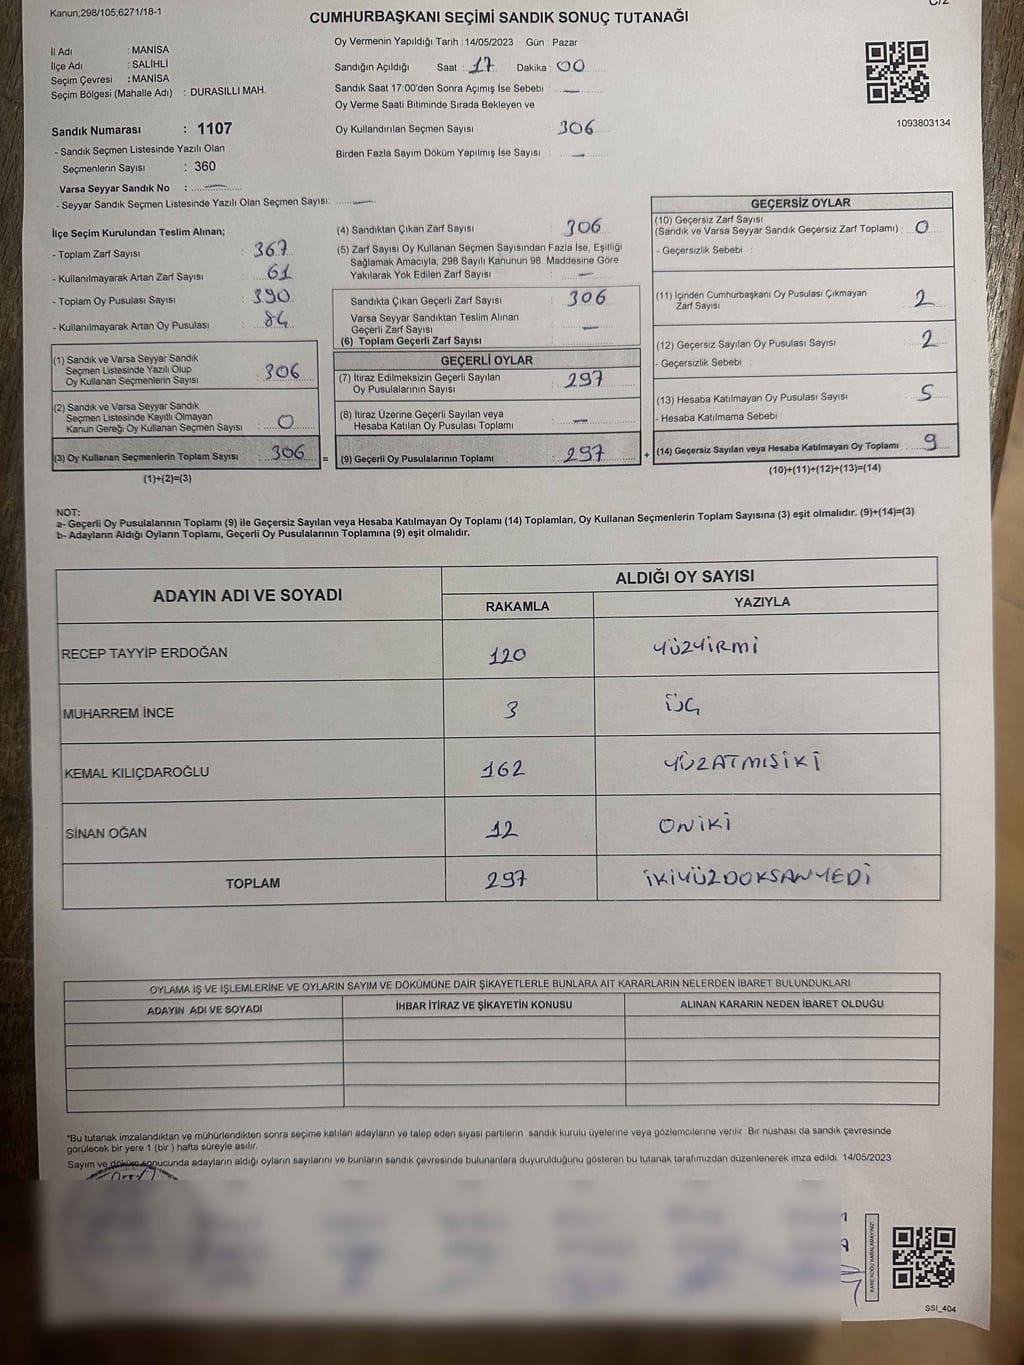 Kanun;298/105;6271/18-1
CUMHURBAŞKANI SEÇİMİ SANDIK SONUÇ TUTANAĞI
İl Adı : MANİSA
İlçe Adı : SALİHLİ
Seçim Çevresi : MANİSA
Seçim Bölgesi (Mahalle Adı) : DURASILLI MAH.
Sandık Numarası : 1107
- Sandık Seçmen Listesinde Yazılı Olan
Seçmenlerin Sayısı : 360
Varsa Seyyar Sandık No : —
- Seyyar Sandık Seçmen Listesinde Yazılı Olan Seçmen Sayısı: —
Oy Vermenin Yapıldığı Tarih : 14/05/2023 Gün : Pazar
Sandığın Açıldığı Saat : 17 Dakika : 00
Sandık Saat 17:00'den Sonra Açımış İse Sebebi : —
Oy Verme Saati Bitiminde Sırada Bekleyen ve
Oy Kullandırılan Seçmen Sayısı : 306
Birden Fazla Sayım Döküm Yapılmış İse Sayısı : —
1093803134
İlçe Seçim Kurulundan Teslim Alınan;
- Toplam Zarf Sayısı : 367
- Kullanılmayarak Artan Zarf Sayısı : 61
- Toplam Oy Pusulası Sayısı : 390
- Kullanılmayarak Artan Oy Pusulası : 84
(1) Sandık ve Varsa Seyyar Sandık
Seçmen Listesinde Yazılı Olup
Oy Kullanan Seçmenlerin Sayısı : 306
(2) Sandık ve Varsa Seyyar Sandık
Seçmen Listesinde Kayıtlı Olmayan
Kanun Gereği Oy Kullanan Seçmen Sayısı : 0
(3) Oy Kullanan Seçmenlerin Toplam Sayısı : 306 =
(1)+(2)=(3)
(4) Sandıktan Çıkan Zarf Sayısı : 306
(5) Zarf Sayısı Oy Kullanan Seçmen Sayısından Fazla İse, Eşitliği
Sağlamak Amacıyla, 298 Sayılı Kanunun 98. Maddesine Göre
Yakılarak Yok Edilen Zarf Sayısı : —
Sandıkta Çıkan Geçerli Zarf Sayısı : 306
Varsa Seyyar Sandıktan Teslim Alınan
Geçerli Zarf Sayısı : —
(6) Toplam Geçerli Zarf Sayısı
GEÇERLİ OYLAR
(7) İtiraz Edilmeksizin Geçerli Sayılan
Oy Pusulalarının Sayısı : 297
(8) İtiraz Üzerine Geçerli Sayılan veya
Hesaba Katılan Oy Pusulası Toplamı : —
(9) Geçerli Oy Pusulalarının Toplamı : 297 +
GEÇERSİZ OYLAR
(10) Geçersiz Zarf Sayısı
(Sandık ve Varsa Seyyar Sandık Geçersiz Zarf Toplamı) : 0
- Geçersizlik Sebebi :
(11) İçinden Cumhurbaşkanı Oy Pusulası Çıkmayan
Zarf Sayısı : 2
(12) Geçersiz Sayılan Oy Pusulası Sayısı : 2
- Geçersizlik Sebebi :
(13) Hesaba Katılmayan Oy Pusulası Sayısı : 5
- Hesaba Katılmama Sebebi :
(14) Geçersiz Sayılan veya Hesaba Katılmayan Oy Toplamı : 9
(10)+(11)+(12)+(13)=(14)
NOT:
a- Geçerli Oy Pusulalarının Toplamı (9) ile Geçersiz Sayılan veya Hesaba Katılmayan Oy Toplamı (14) Toplamları, Oy Kullanan Seçmenlerin Toplam Sayısına (3) eşit olmalıdır. (9)+(14)=(3)
b- Adayların Aldığı Oyların Toplamı, Geçerli Oy Pusulalarının Toplamına (9) eşit olmalıdır.
ADAYIN ADI VE SOYADI
ALDIĞI OY SAYISI
RAKAMLA YAZIYLA
RECEP TAYYİP ERDOĞAN 120 YÜZYİRMİ
MUHARREM İNCE 3 ÜÇ
KEMAL KILIÇDAROĞLU 162 YÜZATMISİKİ
SİNAN OĞAN 12 ONİKİ
TOPLAM 297 İKİYÜZDOKSANYEDİ
OYLAMA İŞ VE İŞLEMLERİNE VE OYLARIN SAYIM VE DÖKÜMÜNE DAİR ŞİKAYETLERLE BUNLARA AİT KARARLARIN NELERDEN İBARET BULUNDUKLARI
ADAYIN ADI VE SOYADI İHBAR İTİRAZ VE ŞİKAYETİN KONUSU ALINAN KARARIN NEDEN İBARET OLDUĞU
*Bu tutanak imzalandıktan ve mühürlendikten sonra seçime katılan adayların ve talep eden siyasi partilerin sandık kurulu üyelerine veya gözlemcilerine verilir. Bir nüshası da sandık çevresinde
görülecek bir yere 1 (bir ) hafta süreyle asılır.
Sayım ve döküm sonucunda adayların aldığı oyların sayılarını ve bunların sandık çevresinde bulunanlara duyurulduğunu gösteren bu tutanak tarafımızdan düzenlenerek imza edildi. 14/05/2023
SSİ_404